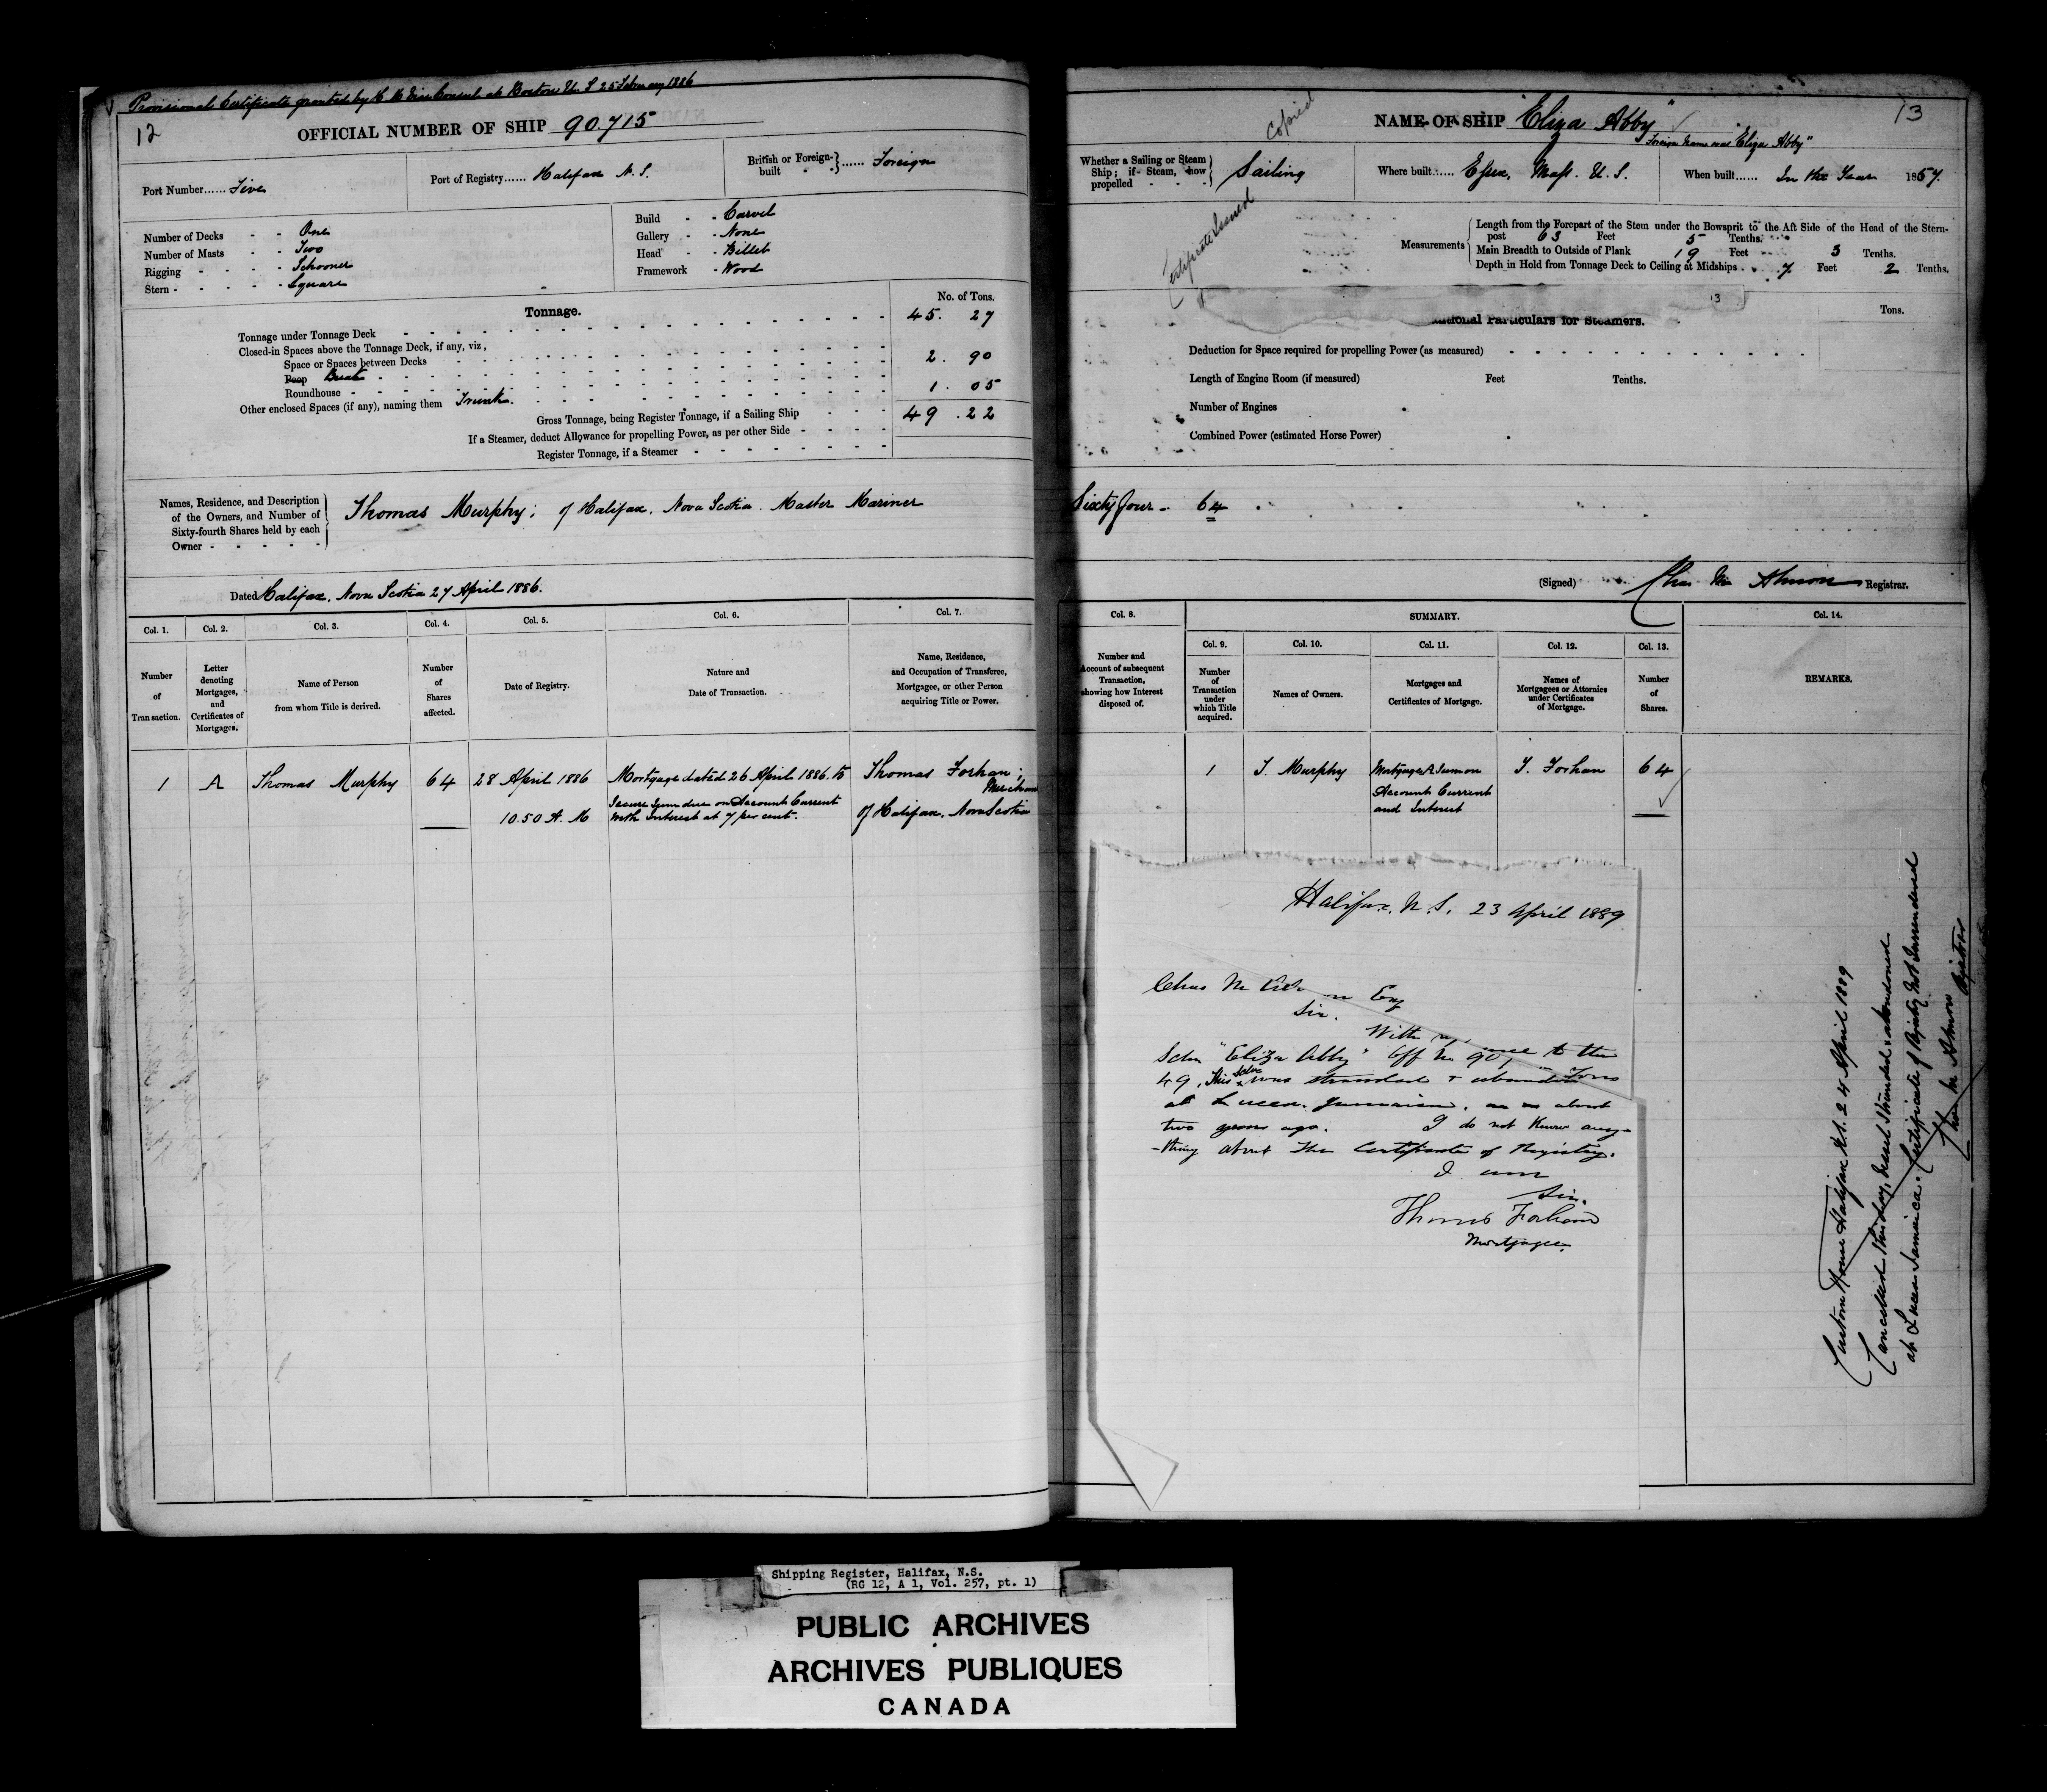 Provisional Certificate granted by H M Vice Consul at Boston U. S 25 February 1886
12
OFFICIAL NUMBER OF SHIP 90.715
Port Number...... Five
Port of Registry...... Halifax N. S.
British or Foreign-built ...... Foreign
Number of Decks - - One
Number of Masts - - Two
Rigging - - - - Schooner
Stern - - - - - Square
Build - - Carvel
Gallery - - None
Head - - Billet
Framework - Wood
Tonnage.
No. of Tons.
Tonnage under Tonnage Deck 45. 27
Closed-in Spaces above the Tonnage Deck, if any, viz,
Space or Spaces between Decks
Poop Break 2. 90
Roundhouse
Other enclosed Spaces (if any), naming them Trunk. 1. 05
Gross Tonnage, being Register Tonnage, if a Sailing Ship 49.22
If a Steamer, deduct Allowance for propelling Power, as per other Side
Register Tonnage, if a Steamer
Names, Residence, and Description
of the Owners, and Number of
Sixty-fourth Shares held by each
Owner - - - - -
Thomas Murphy; of Halifax. Nova Scotia. Master Mariner
Dated Halifax. Nova Scotia 27 April 1886.
Col. 1. Col. 2. Col. 3. Col. 4. Col. 5. Col. 6. Col. 7.
Number of Transaction.
Letter denoting Mortgages, and Certificates of Mortgages.
Name of Person from whom Title is derived.
Number of Shares affected.
Date of Registry.
Nature and Date of Transaction.
Name, Residence, and Occupation of Transferee, Mortgagee, or other Person acquiring Title or Power.
1 A Thomas Murphy 64 28 April 1886
10.50 A. M
Mortgage dated 26 April 1886. to
Secure Sum due on Account Current
with Interest at 7 per cent.
Thomas Forhan;
Merchant
of Halifax. Nova Scotia
Copied
13
NAME OF SHIP "Eliza Abby"
Foreign Name was "Eliza Abby"
Whether a Sailing or Steam Ship; if Steam, how propelled - - - Sailing
Where built...... Essex, Mass. U. S.
When built...... In the Year 1857.
Certificate Issued
Measurements
Length from the Forepart of the Stem under the Bowsprit to the Aft Side of the Head of the Stern-
post 63 Feet 5 Tenths.
Main Breadth to Outside of Plank 19 Feet 3 Tenths.
Depth in Hold from Tonnage Deck to Ceiling at Midships 7 Feet 2 Tenths.
13
Particulars for Steamers.
Tons.
Deduction for Space required for propelling Power (as measured)
Length of Engine Room (if measured) Feet Tenths.
Number of Engines
Combined Power (estimated Horse Power)
Sixty four - 64
(Signed) Chas M Almon Registrar.
Col. 8. SUMMARY. Col. 14.
Col. 9. Col. 10. Col. 11. Col. 12. Col. 13.
Number and Account of subsequent Transaction, showing how Interest disposed of.
Number of Transaction under which Title acquired.
Names of Owners.
Mortgages and Certificates of Mortgage.
Names of Mortgagees or Attornies under Certificates of Mortgage.
Number of Shares.
REMARKS.
1 T. Murphy
Mortgage A Sum on
Account Current
and Interest
T. Forhan 64
Halifax. N. S. 23 April 1889
Chas M
Esq
Sir.
With
Schr "Eliza Abby" Off No 90, to the
49, This Schr was stranded + Tons
at Lucea. Jamaica. about
two years ago. I do not know any-
-thing about the Certificate of Registry.
I am
Sir.
Thomas Forhan
Mortgagee.
Custom House Halifax N.S. 24 April 1889
Cancelled this day, Vessel Stranded & abandoned
at Lucea Jamaica. Certificate of Registry Not Surrendered
Chas M Almon Registrar
Shipping Register, Halifax, N.S.
(RG 12, A 1, Vol. 257, pt. 1)
PUBLIC ARCHIVES
ARCHIVES PUBLIQUES
CANADA